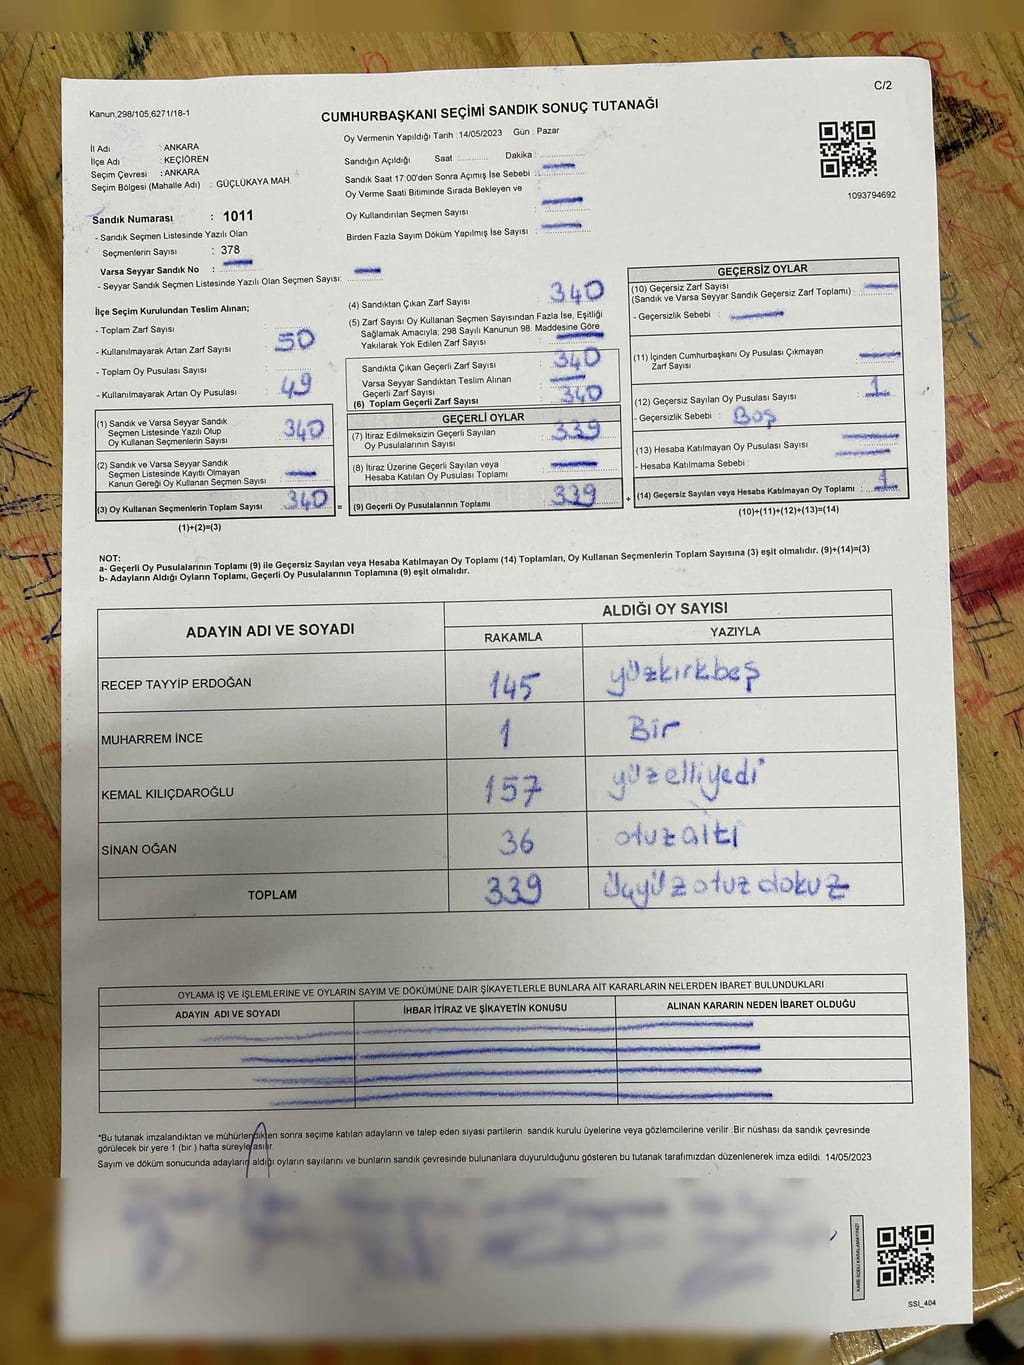 C/2
Kanun,298/105,6271/18-1
CUMHURBAŞKANI SEÇİMİ SANDIK SONUÇ TUTANAĞI
Oy Vermenin Yapıldığı Tarih : 14/05/2023 Gün : Pazar
İl Adı : ANKARA
İlçe Adı : KEÇİÖREN
Seçim Çevresi : ANKARA
Seçim Bölgesi (Mahalle Adı) : GÜÇLÜKAYA MAH.
Sandık Numarası : 1011
- Sandık Seçmen Listesinde Yazılı Olan
Seçmenlerin Sayısı : 378
Varsa Seyyar Sandık No :
- Seyyar Sandık Seçmen Listesinde Yazılı Olan Seçmen Sayısı:
Sandığın Açıldığı Saat : Dakika :
Sandık Saat 17.00'den Sonra Açımış İse Sebebi :
Oy Verme Saati Bitiminde Sırada Bekleyen ve
Oy Kullandırılan Seçmen Sayısı
Birden Fazla Sayım Döküm Yapılmış İse Sayısı :
1093794692
İlçe Seçim Kurulundan Teslim Alınan;
- Toplam Zarf Sayısı :
- Kullanılmayarak Artan Zarf Sayısı : 50
- Toplam Oy Pusulası Sayısı :
- Kullanılmayarak Artan Oy Pusulası : 49
(1) Sandık ve Varsa Seyyar Sandık
Seçmen Listesinde Yazılı Olup
Oy Kullanan Seçmenlerin Sayısı : 340
(2) Sandık ve Varsa Seyyar Sandık
Seçmen Listesinde Kayıtlı Olmayan
Kanun Gereği Oy Kullanan Seçmen Sayısı :
(3) Oy Kullanan Seçmenlerin Toplam Sayısı : 340 =
(1)+(2)=(3)
(4) Sandıktan Çıkan Zarf Sayısı : 340
(5) Zarf Sayısı Oy Kullanan Seçmen Sayısından Fazla İse, Eşitliği
Sağlamak Amacıyla; 298 Sayılı Kanunun 98. Maddesine Göre
Yakılarak Yok Edilen Zarf Sayısı :
Sandıkta Çıkan Geçerli Zarf Sayısı : 340
Varsa Seyyar Sandıktan Teslim Alınan
Geçerli Zarf Sayısı :
(6) Toplam Geçerli Zarf Sayısı : 340
GEÇERLİ OYLAR
(7) İtiraz Edilmeksizin Geçerli Sayılan
Oy Pusulalarının Sayısı : 339
(8) İtiraz Üzerine Geçerli Sayılan veya
Hesaba Katılan Oy Pusulası Toplamı :
(9) Geçerli Oy Pusulalarının Toplamı : 339 +
GEÇERSİZ OYLAR
(10) Geçersiz Zarf Sayısı
(Sandık ve Varsa Seyyar Sandık Geçersiz Zarf Toplamı) :
- Geçersizlik Sebebi :
(11) İçinden Cumhurbaşkanı Oy Pusulası Çıkmayan
Zarf Sayısı :
(12) Geçersiz Sayılan Oy Pusulası Sayısı : 1
- Geçersizlik Sebebi : Boş
(13) Hesaba Katılmayan Oy Pusulası Sayısı :
- Hesaba Katılmama Sebebi :
(14) Geçersiz Sayılan veya Hesaba Katılmayan Oy Toplamı : 1
(10)+(11)+(12)+(13)=(14)
NOT:
a- Geçerli Oy Pusulalarının Toplamı (9) ile Geçersiz Sayılan veya Hesaba Katılmayan Oy Toplamı (14) Toplamları, Oy Kullanan Seçmenlerin Toplam Sayısına (3) eşit olmalıdır. (9)+(14)=(3)
b- Adayların Aldığı Oyların Toplamı, Geçerli Oy Pusulalarının Toplamına (9) eşit olmalıdır.
ADAYIN ADI VE SOYADI ALDIĞI OY SAYISI
RAKAMLA YAZIYLA
RECEP TAYYİP ERDOĞAN 145 yüzkırkbeş
MUHARREM İNCE 1 Bir
KEMAL KILIÇDAROĞLU 157 yüzelliyedi
SİNAN OĞAN 36 otuzaltı
TOPLAM 339 üçyüzotuzdokuz
OYLAMA İŞ VE İŞLEMLERİNE VE OYLARIN SAYIM VE DÖKÜMÜNE DAİR ŞİKAYETLERLE BUNLARA AİT KARARLARIN NELERDEN İBARET BULUNDUKLARI
ADAYIN ADI VE SOYADI İHBAR İTİRAZ VE ŞİKAYETİN KONUSU ALINAN KARARIN NEDEN İBARET OLDUĞU
*Bu tutanak imzalandıktan ve mühürlendikten sonra seçime katılan adayların ve talep eden siyasi partilerin sandık kurulu üyelerine veya gözlemcilerine verilir .Bir nüshası da sandık çevresinde
görülecek bir yere 1 (bir ) hafta süreyle asılır.
Sayım ve döküm sonucunda adayların aldığı oyların sayılarını ve bunların sandık çevresinde bulunanlara duyurulduğunu gösteren bu tutanak tarafımızdan düzenlenerek imza edildi. 14/05/2023
SSI_404